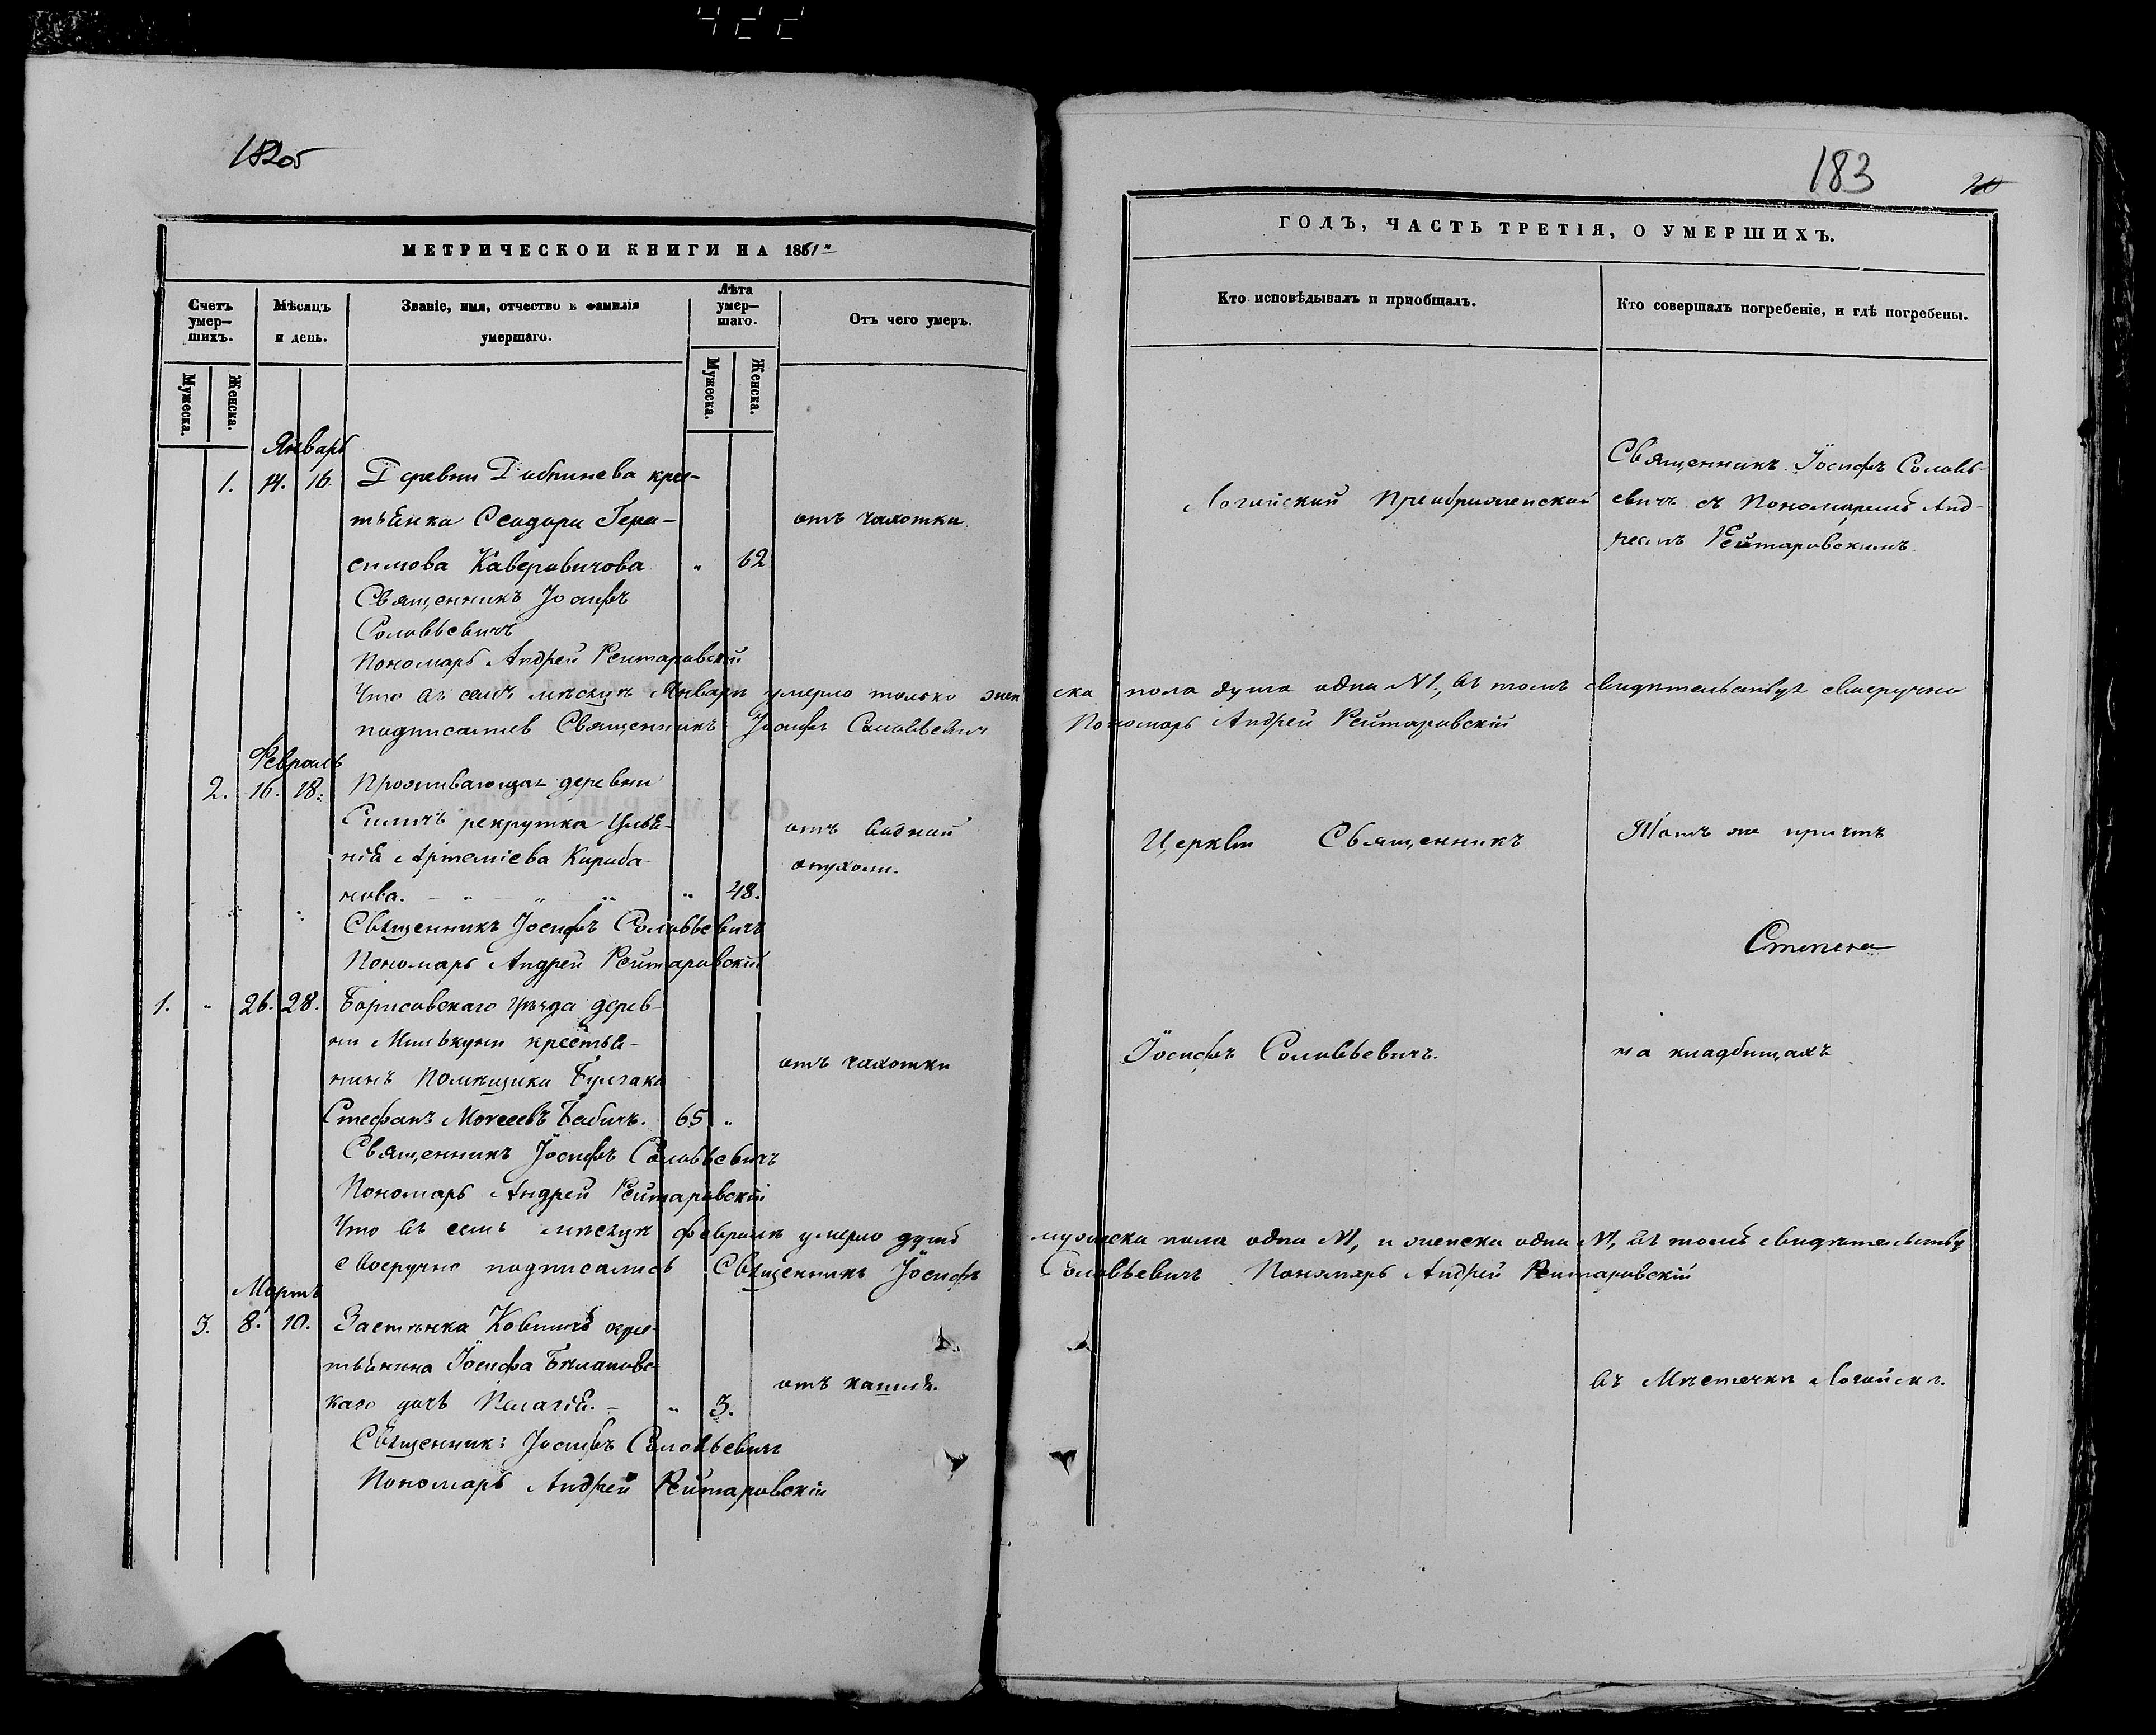 183
20
МЕТРИЧЕСКОЙ КНИГИ НА 1861й
ГОДЪ, ЧАСТЬ ТРЕТІЯ, О УМЕРШИХЪ.
Счетъ умер–шихъ.
Мѣсяцъ и день.
Званіе, имя, отчество и фамилія умершаго.
Лѣта умер–шаго.
Отъ чего умеръ.
Кто исповѣдывалъ и пріобщалъ.
Кто совершалъ погребеніе, и гдѣ погребены.
Мужеска.
Женска.
Мужеска.
Женска.
Январь
1. 14. 16. Деревни кресть-
тьянка Ѳеодора Гера-
симова Каверовичова " 62
отъ чахотки
Священникъ Іосифъ
Соловьевичъ
Пономарь Андрей Рейтаровскій
Что въ семъ мѣсяцѣ Январѣ умерло только жен
подписались Священникъ Іосифъ Соловьевичъ
Февраль
2. 16. 18. Проживающая деревни
рекрутка Ульѧ-
нія Артеміева
нова. " 48.
отъ водяной
опухоли.
Священникъ Іосифъ Соловьевичъ
Пономарь Андрей Рейтаровскій
1. " 26. 28. Борисовскаго уѣзда дерев-
ни крестья-
нинъ Помѣщика Булгака
Стефанъ Моѵсеевъ Бабичъ. 65 "
отъ чахотки
Священникъ Іосифъ Соловьевичъ
Пономарь Андрей Рейтаровскій
Что въ семъ мѣсяцѣ Февралѣ умерло душъ
своеручно подписались Священникъ Іосифъ
Мартъ
3. 8. 10. Застѣнка кре-
тьянина Іосифа
каго дочь Пелагія. " 3.
отъ кашля.
Священникъ Іосифъ Соловьевичъ
Пономарь Андрей Рейтаровскій
Логойской Преображенской
Священникъ Іосифъ Соловь-
евичъ съ Пономаремъ Анд-
реемъ Рейтаровскимъ
ска пола душа одна №1, въ томъ свидѣтельствуя своеручно
Пономарь Андрей Рейтаровскій
Церкви Священникъ
Тотъ же причтъ
Іосифъ Соловьевичъ.
на кладбищахъ
мужеска пола одна №1, и женска одна №1, въ томъ свидѣтельству
Соловьевичъ Пономарь Андрей Рейтаровскій
въ Мѣстечкѣ Логойскѣ.